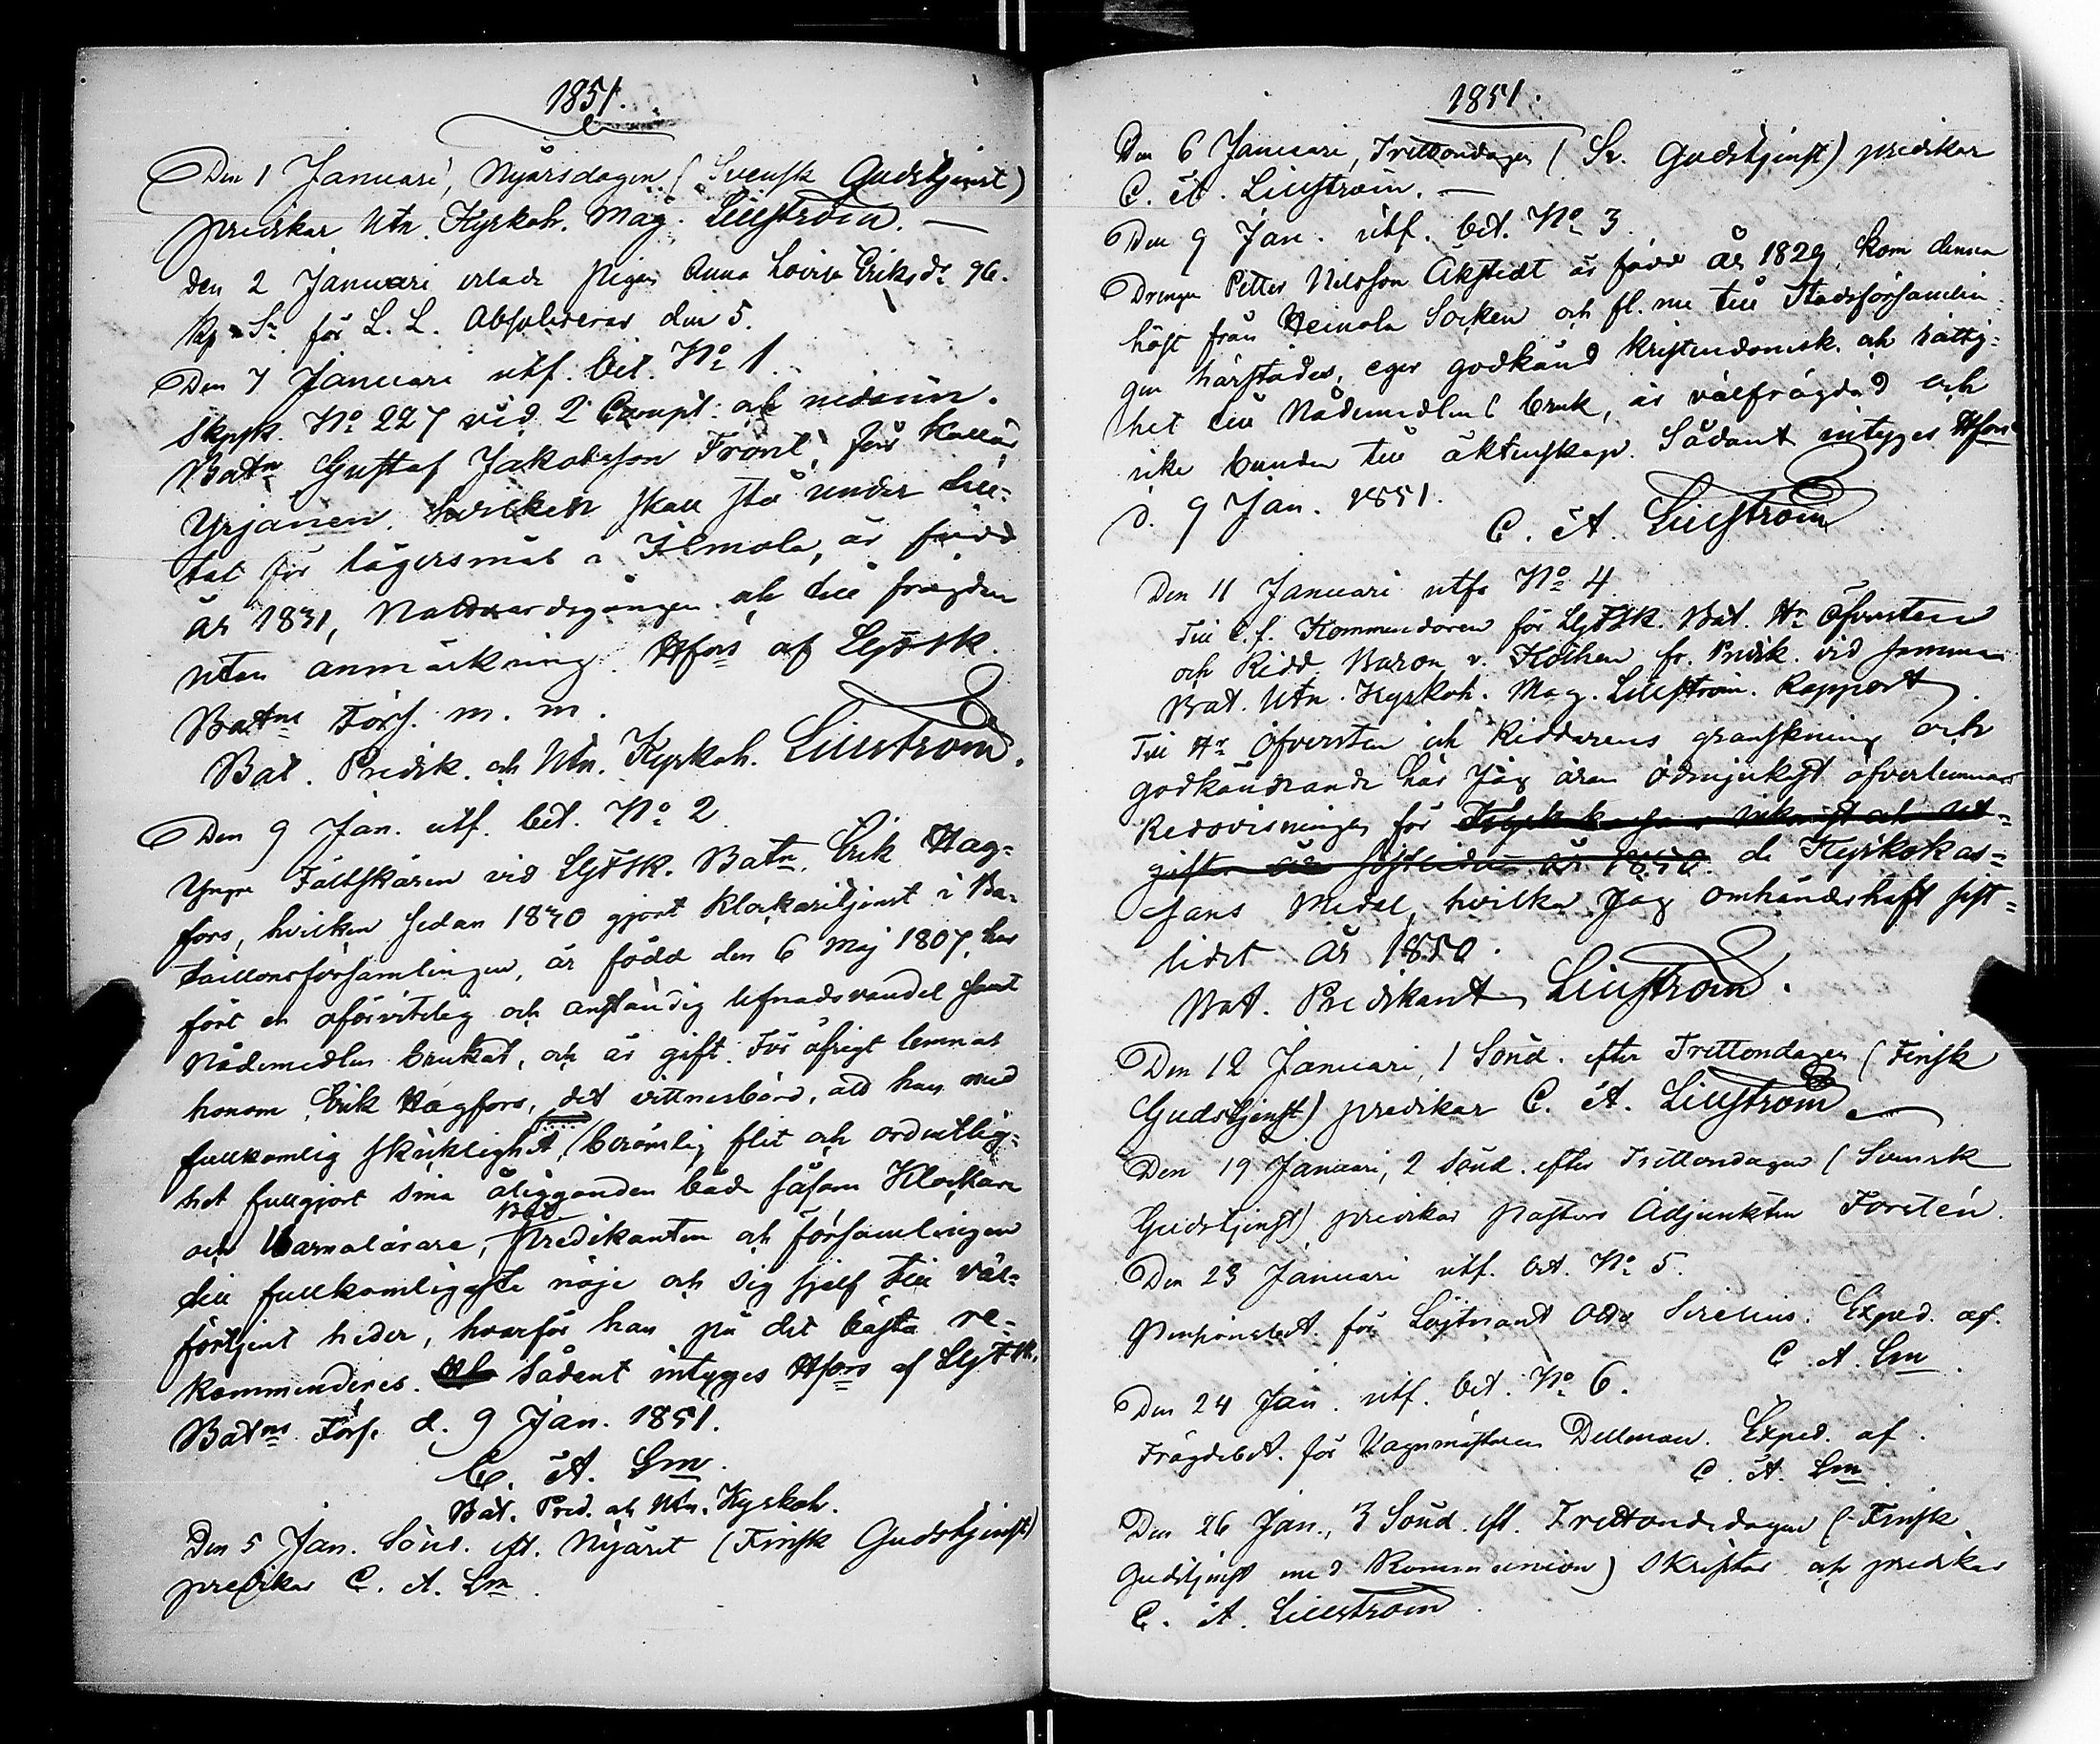 1851.
Den 1 Januari, Nyårsdagen (Svensk Gudstjenst)
predikar Utn. Kyrkoh. Mag. Lillström. —
den 2 Januari erlade pigan Anna Lovisa Eriksdr 96.
kp. Sr för L. L. Absolverad den 5.
Den 7 Januari utf. bet. No 1.
Skpsk. No 227 vid 2 Compt. och nedann.
Batn Gustaf Jakobsson Front, förr kallad
Yrjänen, hvilken skall stå under till-
tal för lägersmål i Kemola, är född
år 1831, Nattvardsgången och till frägden
utan anmärkning. Hfors af LgFSk.
Batns Förs. m. m.
Bat. Predik. och Utn. Kyrkoh. Lillström.
Den 9 Jan. utf. bet. No 2.
Yngre Fältskären vid LgFSk. Batn, Erik Hag-
fors, hvilken sedan 1840 gjort klockaretjenst i Ba-
taillonsförsamlingen, är född den 6 Maj 1807, har
fört en oförvitelig och anständig lefnadsvandel samt
Nådemedlen brukat, och är gift. För öfrigt lemnas
honom, Erik Hagfors, det vittnesbörd, att han med
fullkomlig skicklighet, berömlig flit och ordentlig-
het fullgjort sina åligganden både såsom Klockare
och Barnalärare, Bat. Predikanten och församlingen
till fullkomligaste nöje och sig sjelf till väl-
förtjent heder, hvarför han på det bästa re-
kommenderes. Sådant intygges Hfors af LgFSk.
Batns Förs. d. 9 Jan. 1851.
C. A. Lm.
Bat. Pred. och Utn. Kyrkoh.
Den 5 Jan. Sönd. eft. Nyåret (Finsk Gudstjenst)
predikar C. A. Lm.
1851.
Den 6 Januari, Trettondagen (Sv. Gudstjenst) predikar
C. A. Lillström. —
Den 9 Jan. utf. bet. No 3.
Drengen Petter Nilsson Åkstedt är född år 1829, kom denna
höst från Heinola Socken och fl. nu till Stadsförsamlin-
gen härstädes, eger godkänd kristendomsk. och rättig-
het till Nådemedlens bruk, är välfrägdad och
icke bunden till äktenskap. Sådant intygges Hfors
d. 9 Jan. 1851.
C. A. Lillström
Den 11 Januari utfs No 4.
Till t. f. Kommendören för LgFSk. Bat. Hr Öfversten
och Ridd. Baron v. Kothen fr. Predik. vid samma
Bat. Utn. Kyrkoh. Mag. Lillström. Rapport.
Till Hr Öfversten och Riddarens granskning och
godkännande har Jag äran ödmjukast öfverlemna
Redovisningen för Kyrkokassans inkomst och ut-
gift sistlidne år 1850. de Kyrkokas-
sans Medel, hvilka Jag omhänderhaft sist-
lidet år 1850.
Bat. Predikant Lillström.
Den 12 Januari, 1 Sönd. efter Trettondagen (Finsk
Gudstjenst) predikar C. A. Lillström —
Den 19 Januari, 2 Sönd. efter Trettondagen (Svensk
Gudstjenst) predikar Pastors Adjunkten Forstén.
Den 23 Januari utf. bet. No 5.
Pensionsbet. för Löjtnant Otto Sirelius. Exped. af.
C. A. Lm.
Den 24 Jan. utf. bet. No 6.
Frägdebet. för Vagnmästaren Dellman. Exped. af.
C. A. Lm.
Den 26 Jan., 3 Sönd. eft. Trettondedagen (Finsk
Gudstjenst med Kommunion) skriftar och predikar
C. A. Lillström.